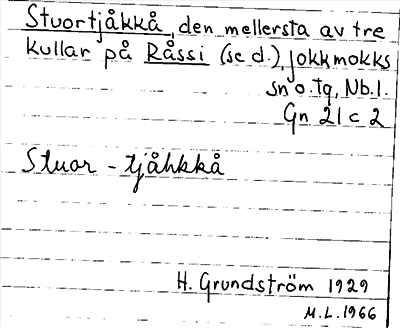 Stuortjåkkå, den mellersta av tre
kullar på Råssi (se d.), Jokkmokks
sn o. tg, Nb. l.
Gn 21 c 2
Stuor - tjåhkkå
H. Grundström 1929
M.L. 1966